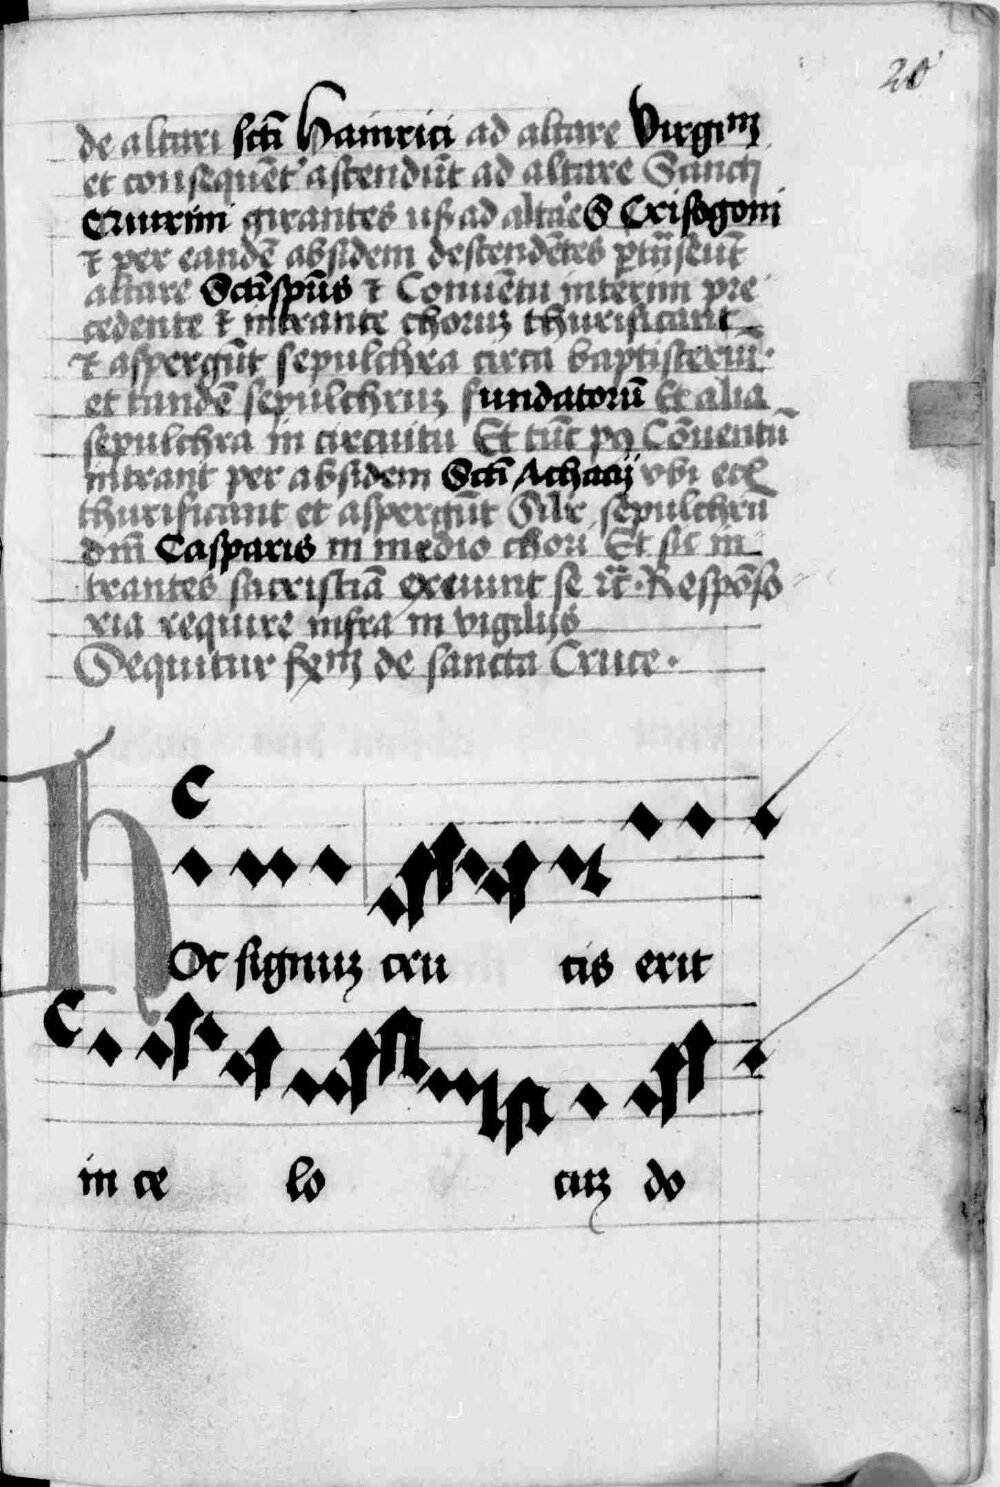 20
de altari sctī Hainrici ad altare Virginum
et consequēt' ascendūt ad altare Sancti
Quirini girantes usq ad altare S Crisogoni
et per eandē absidem descendētes
altare Sctīspūs et Conuētu interim pre
cedente et intrante choruz thurificant
et aspergūt sepulchra circa baptisteriū.
et tandē sepulchruz fundatorū Et alia
sepulchra in circuitu Et tūc Cōuentū
intrant per absidem Sctī Achacij vbi
thurificant et aspergūt sepulchrū
dnī Casparis in medio chori Et sic in
trantes sacristiā exeunt se Respōso
ria require infra in vigilijs
Sequitur de sancta Cruce.
HOc signuz cru cis erit
in ce lo cuz do